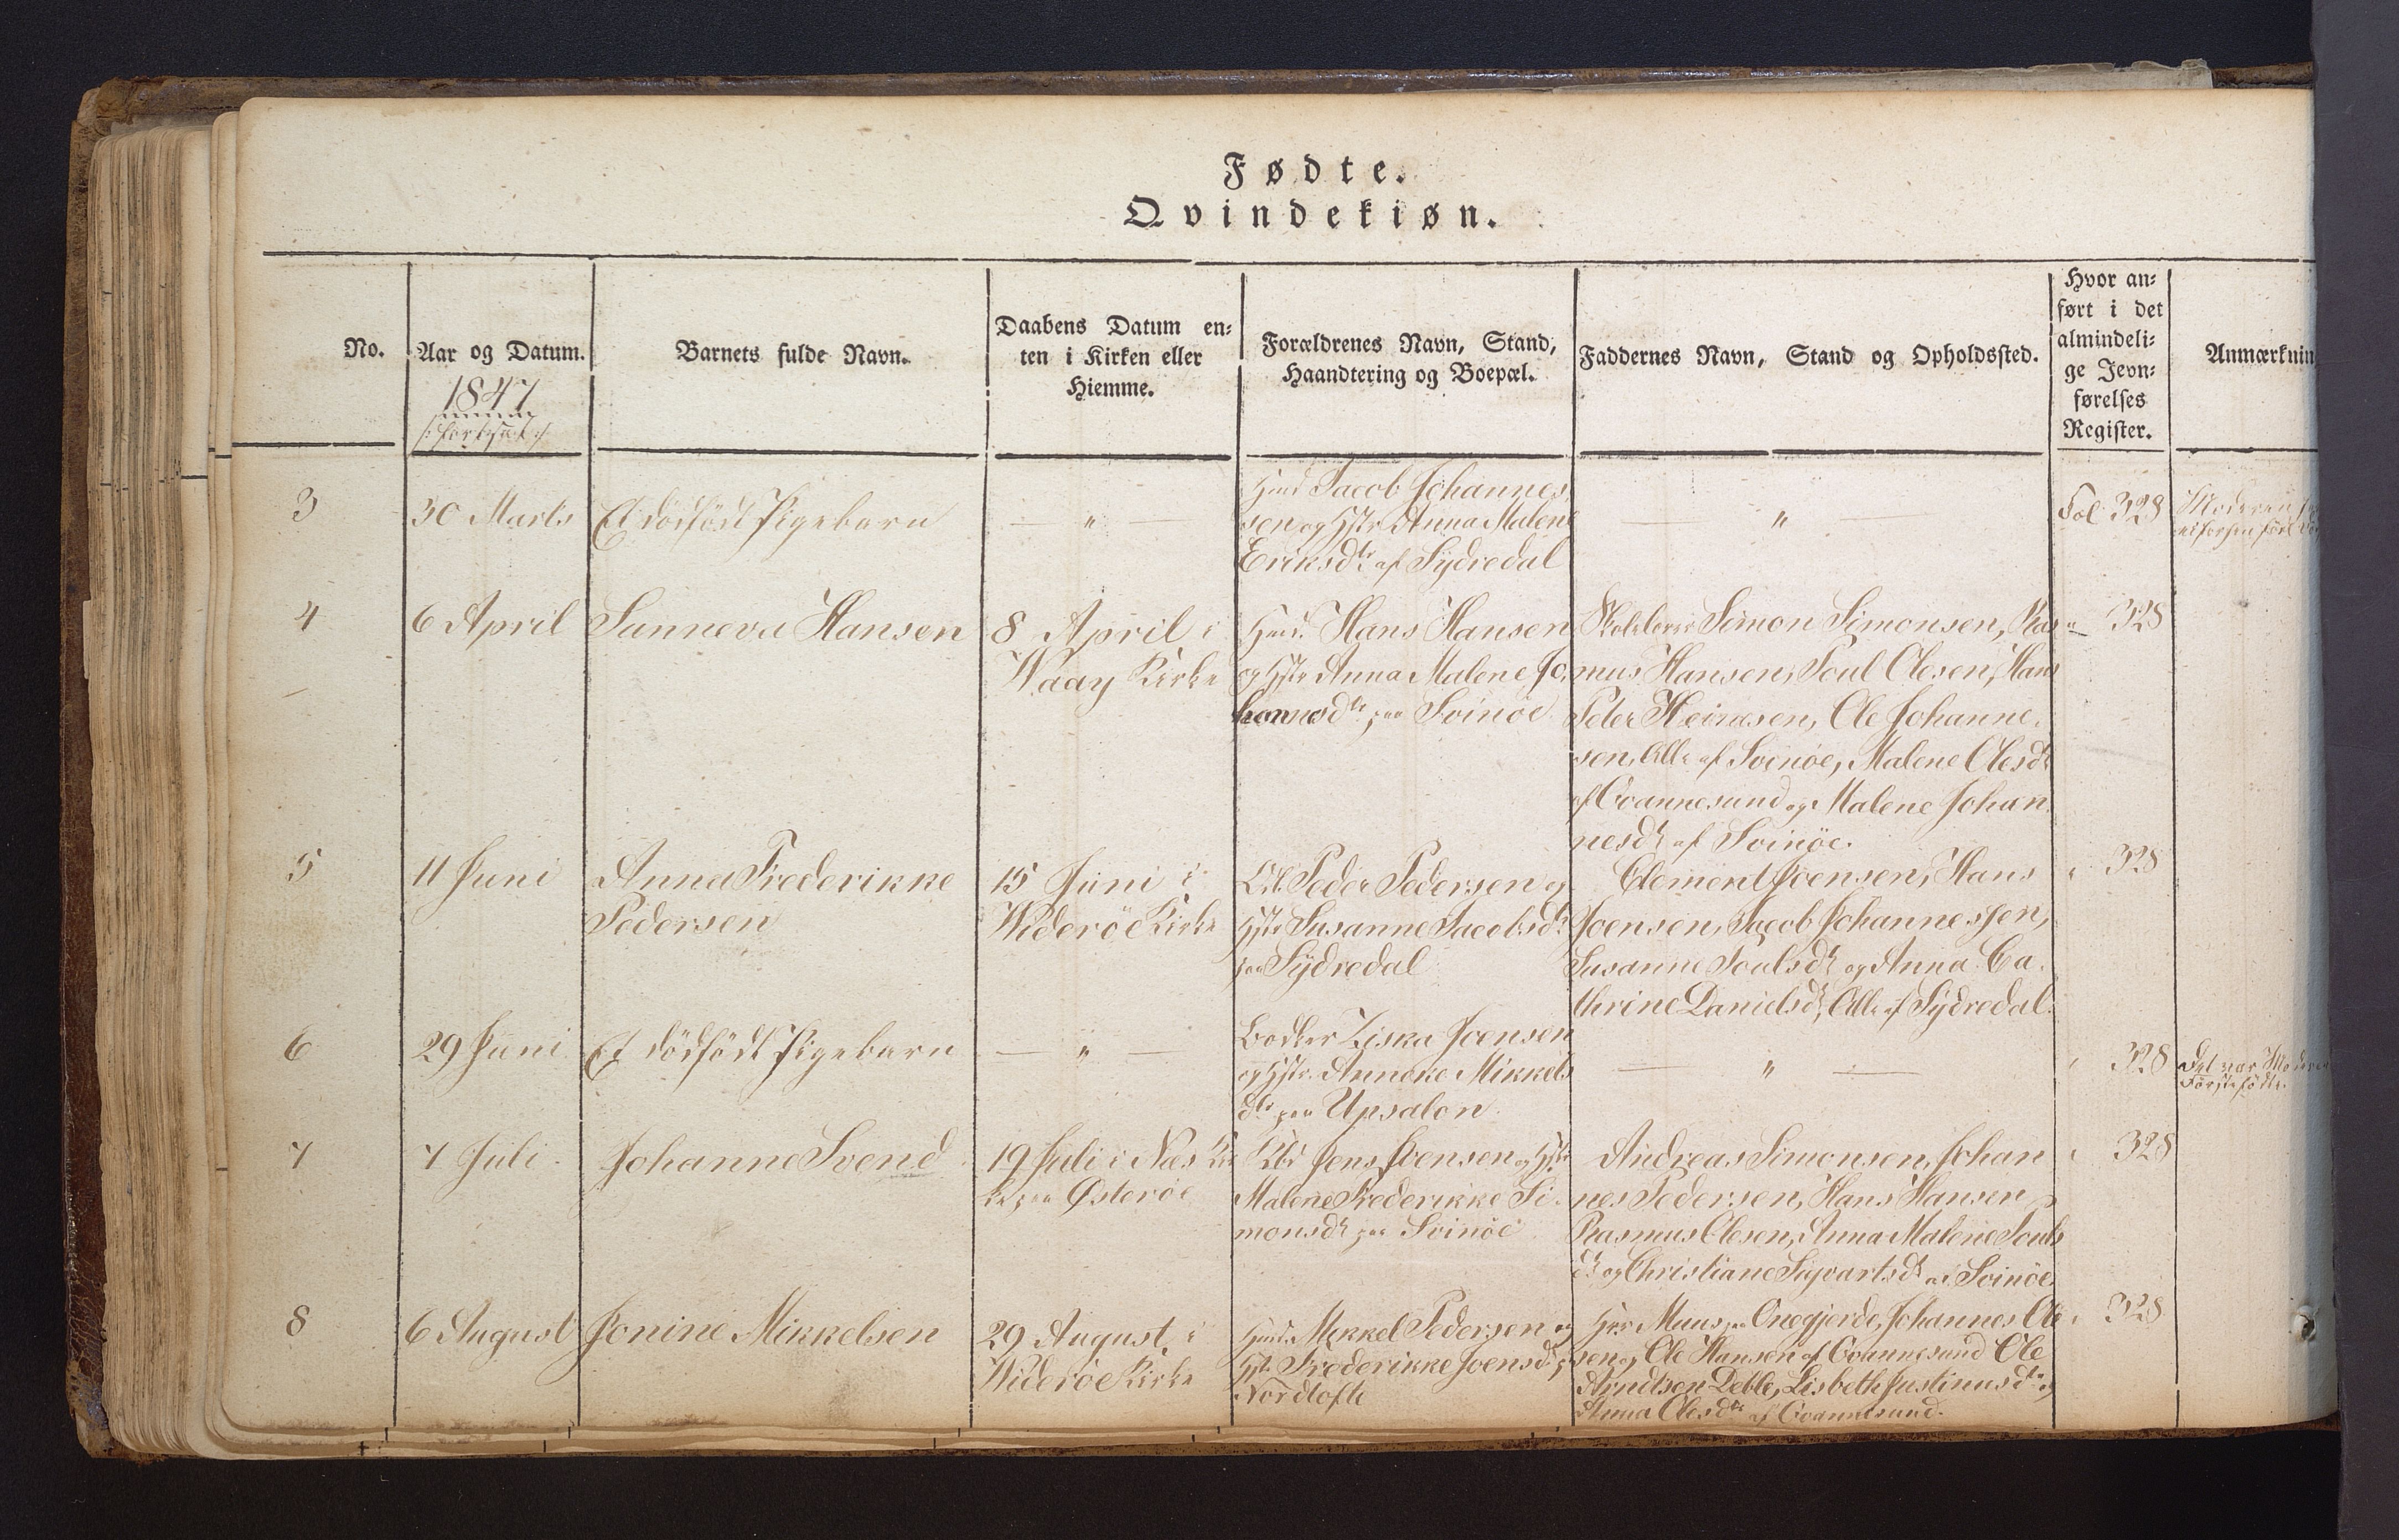 Fødte.
Qvindekiøn.
No.
Aar og Datum.
1847
/: fortsat :/
Barnets fulde Navn.
Daabens Datum en-
ten i Kirken eller
Hiemme.
Forældrenes Navn, Stand,
Haandtering og Boepæl.
Faddernes Navn, Stand og Opholdssted.
Hvor an-
ført i det
almindeli-
ge Jevn-
førelses
Register.
Anmærknin
3
30 Marts
Et dødfödt Pigebarn
— " —
Huusmd Jacob Johannes-
sen og Hstr Anna Malene
Eriksdtr af Sydredal
— " —
Fol 328
Moderen
4
6 April
Sunneva Hansen
8 April i
Waay Kirke
Huusmd. Hans Hansen
og Hstr Anna Malene Jo-
hannesdtr paa Svinöe
Skolelærer Simon Simonsen, Ras-
mus Hansen, Poul Olesen, Hans
Peter Heinesen, Ole Johanne-
sen, Alle af Svinöe, Malene Olesdtr
af Qvannesund og Malene Johan-
nesdtr af Svinöe.
" 328
5
11 Juni
Anna Frederikke
Pedersen
15 Juni i
Wideröe Kirke
Peder Pedersen og
Hstr Susanne Jacobsdtr
paa Sydredal
Clement Joensen, Hans
Joensen, Jacob Johannessen,
Susanne Poulsdtr og Anna Ca-
thrine Danielsdtr, Alle af Sydredal.
" 328
6
29 Juni
Et dödfödt Pigebarn
— " —
Bødker Ziska Joensen
og Hstr. Anneke Mikkels
dtr paa Upsalon.
— " —
" 328
Det var Moderens
Förstefödte.
7
7 Juli.
Johanne Svend
19 Juli i Næs Kir
ke paa Østeröe
Kbd Jens Joensen og Hstr
Malene Frederikke Si-
monsdtr paa Svinöe
Andreas Simonsen, Johan
nes Pedersen, Hans Hansen,
Rasmus Olesen, Anna Malene Pouls
dtr og Christiane Sigvartsdtr af Svinöe.
" 328
8
6 August
Jonine Mikkelsen
29 August, i
Wideröe Kirke
Huusmd. Mikkel Pedersen og
Hstr Frederikke Joensdtr paa
Nordtofte
Hr Muus paa Onegjerde, Johannes Ole-
sen og Ole Hansen af Qvannesund Ole
Arndtsen Deble, Lisbeth Justinusdtr og
Anna Olesdtr af Qvannesund.
" 328